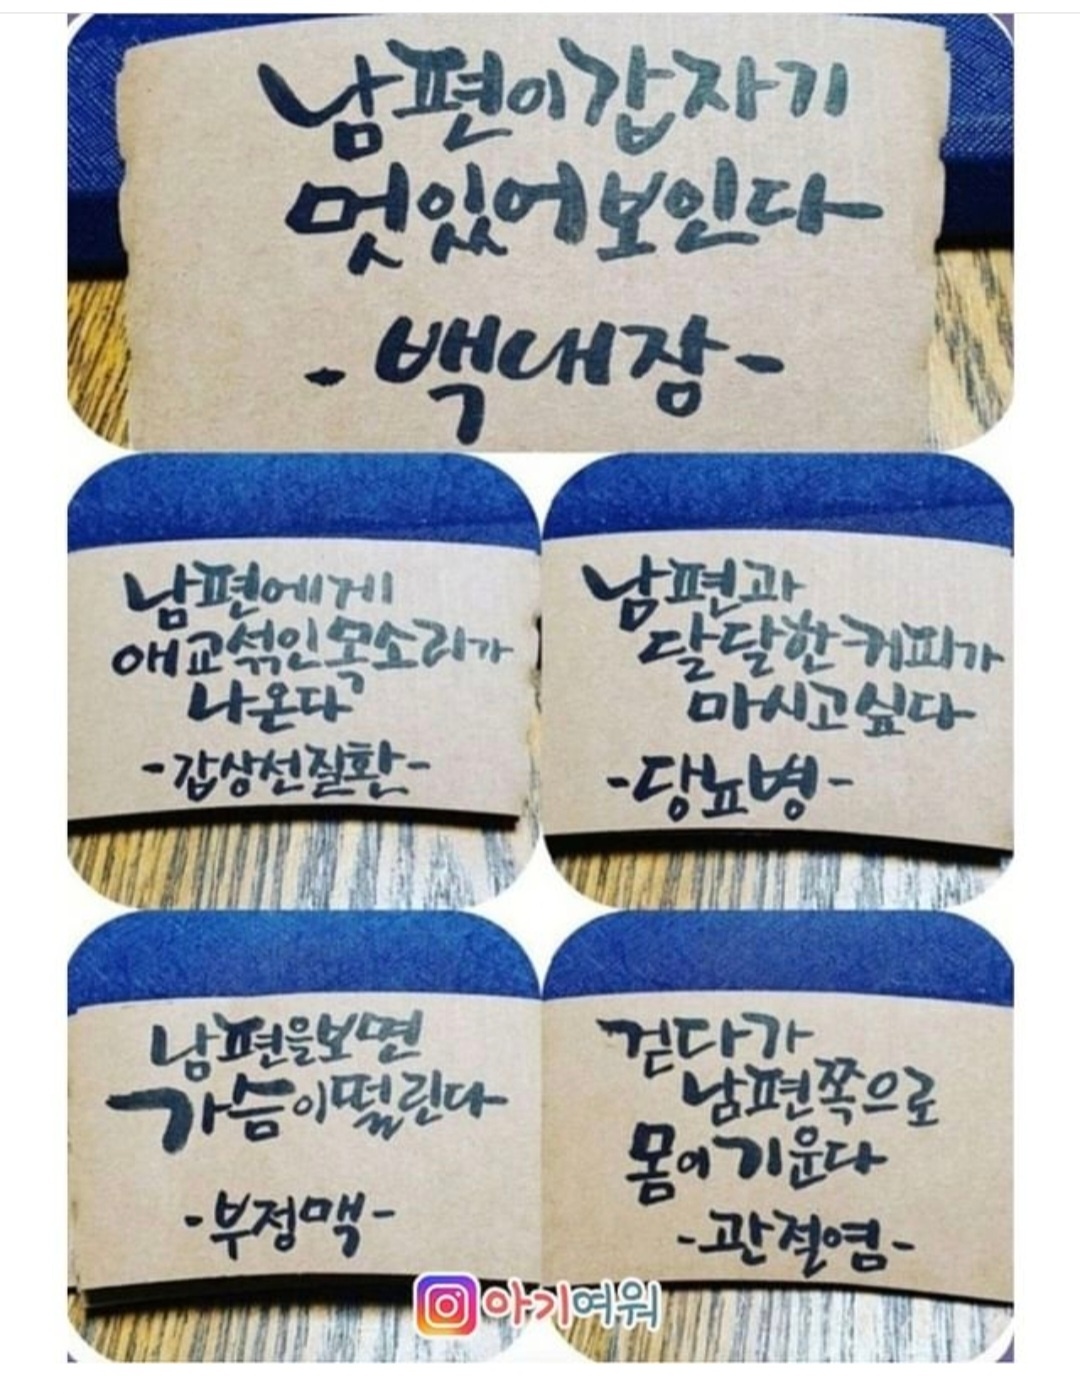 남편이 갑자기
멋있어 보인다
-백내장-
남편에게
애교섞인 목소리가
나온다
-갑상선질환-
남편과
달달한 커피가
마시고 싶다
-당뇨병-
남편을 보면
가슴이 떨린다
-부정맥-
걷다가
남편쪽으로
몸이 기운다
-관절염-
아기여워